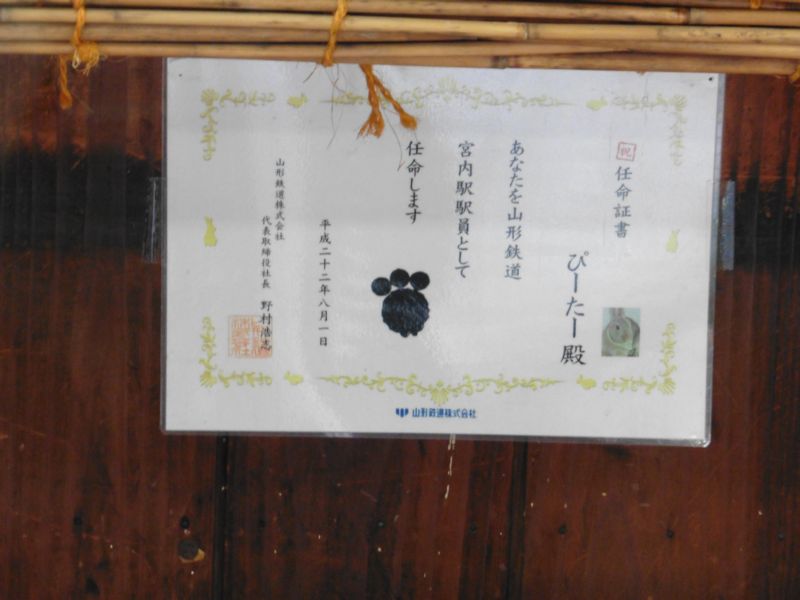 祝 任命証書
ぴーたー殿
あなたを山形鉄道
宮内駅駅員として
任命します
平成二十二年八月一日
山形鉄道株式会社
代表取締役社長 野村浩志
山形鉄道株式会社